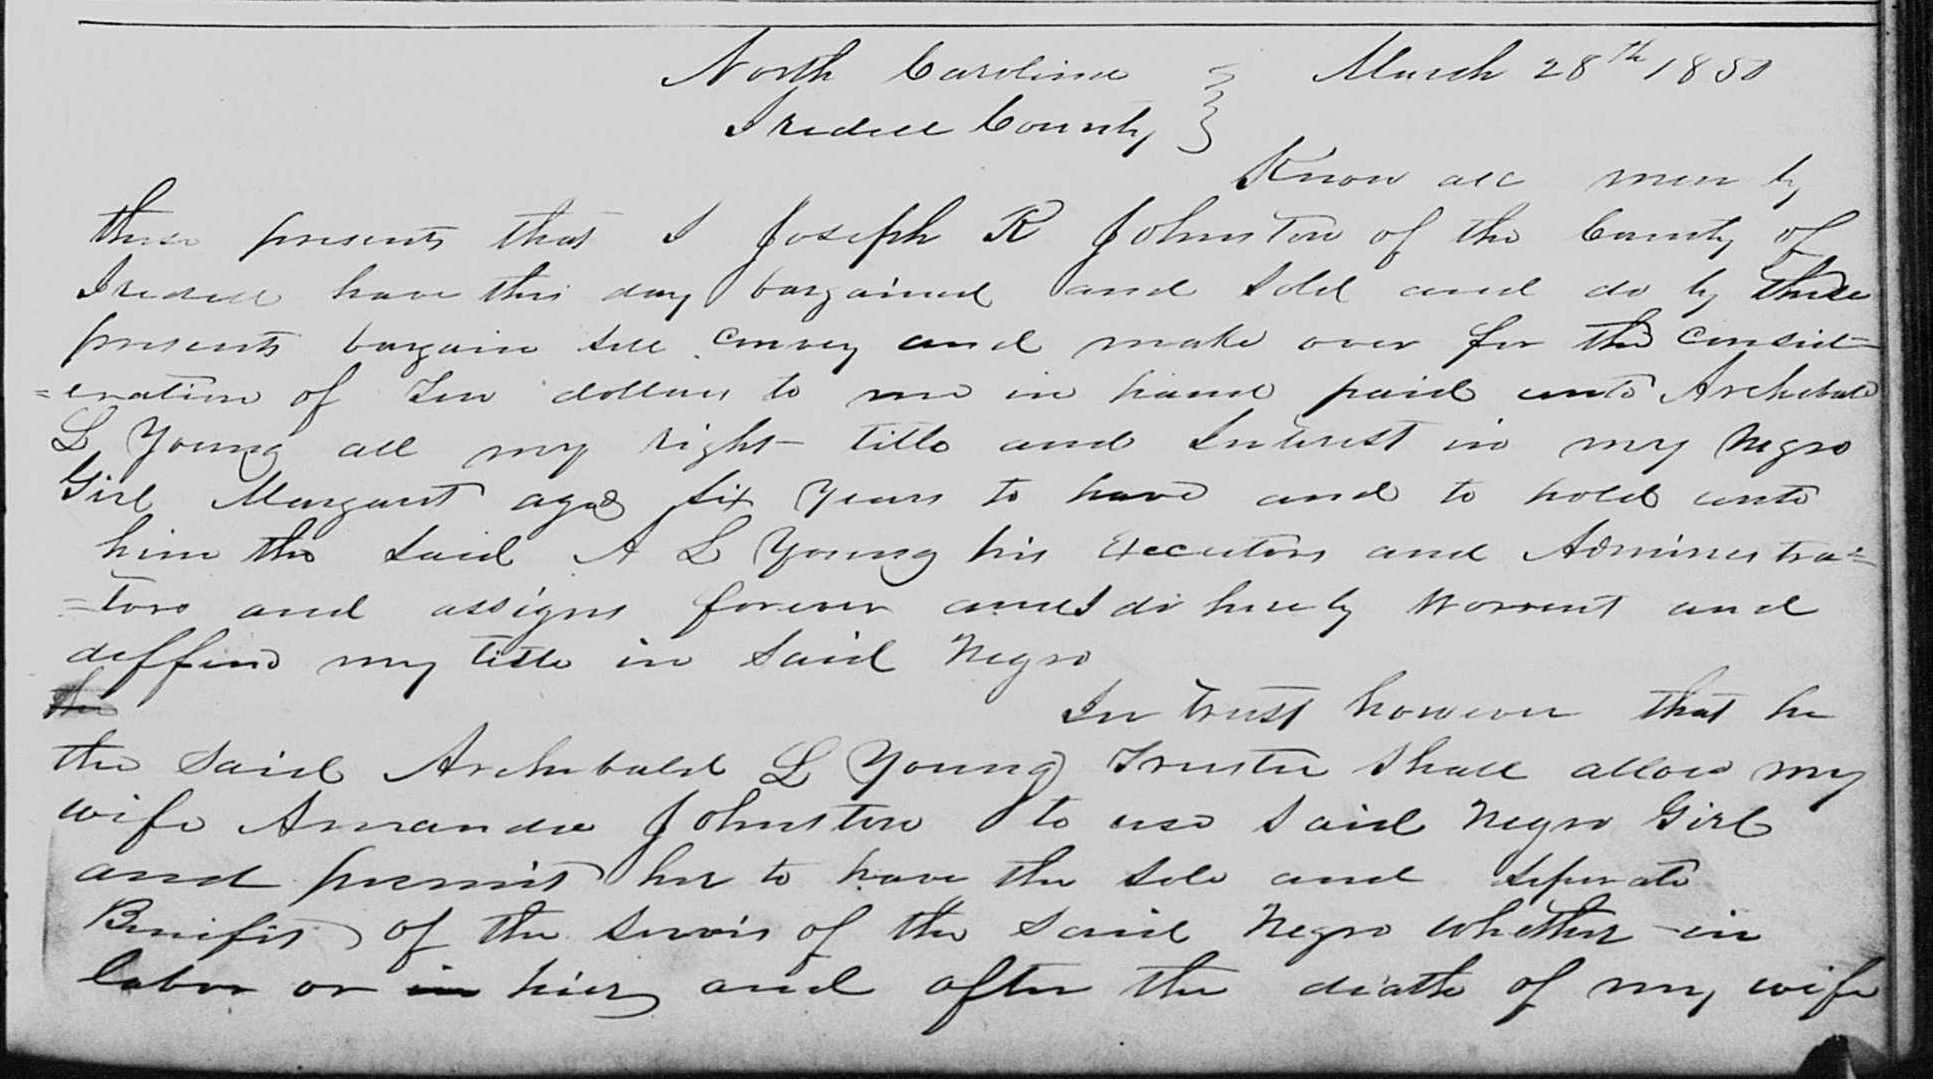 North Carolina } March 28th 1850
Iredell County }
Know all men by
these presents that I Joseph R Johnston of the County of
Iredell have this day bargained and sold and do by these
presents bargain sell convey and make over for the consid-
=eration of Ten dollars to me in hand paid unto Archibald
L Young all my right title and Interest in my Negro
Girl Margaret aged six years to have and to hold unto
him the said A L Young his Executors and Adminestra=
=tors and assigns forever and I do hereby Worrent and
deffend my title in said Negro
In trust however that he
the said Archibald L Young Trustee shall allow my
wife Amanda Johnston to use said Negro Girl
and permit her to have the sole and seperate
Benifit of the servis of the said Negro whether in
labor or in hier and after the death of my wife